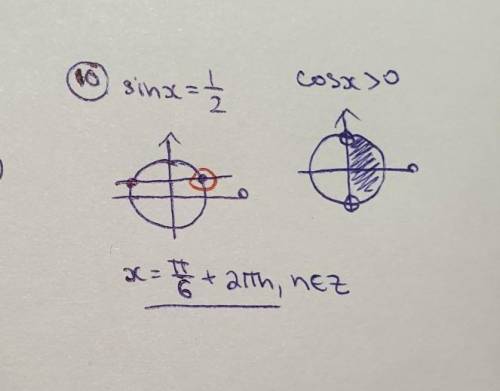 10 sinx = 1/2 cosx > 0
x = π/6 + 2πn, n ∈ Z